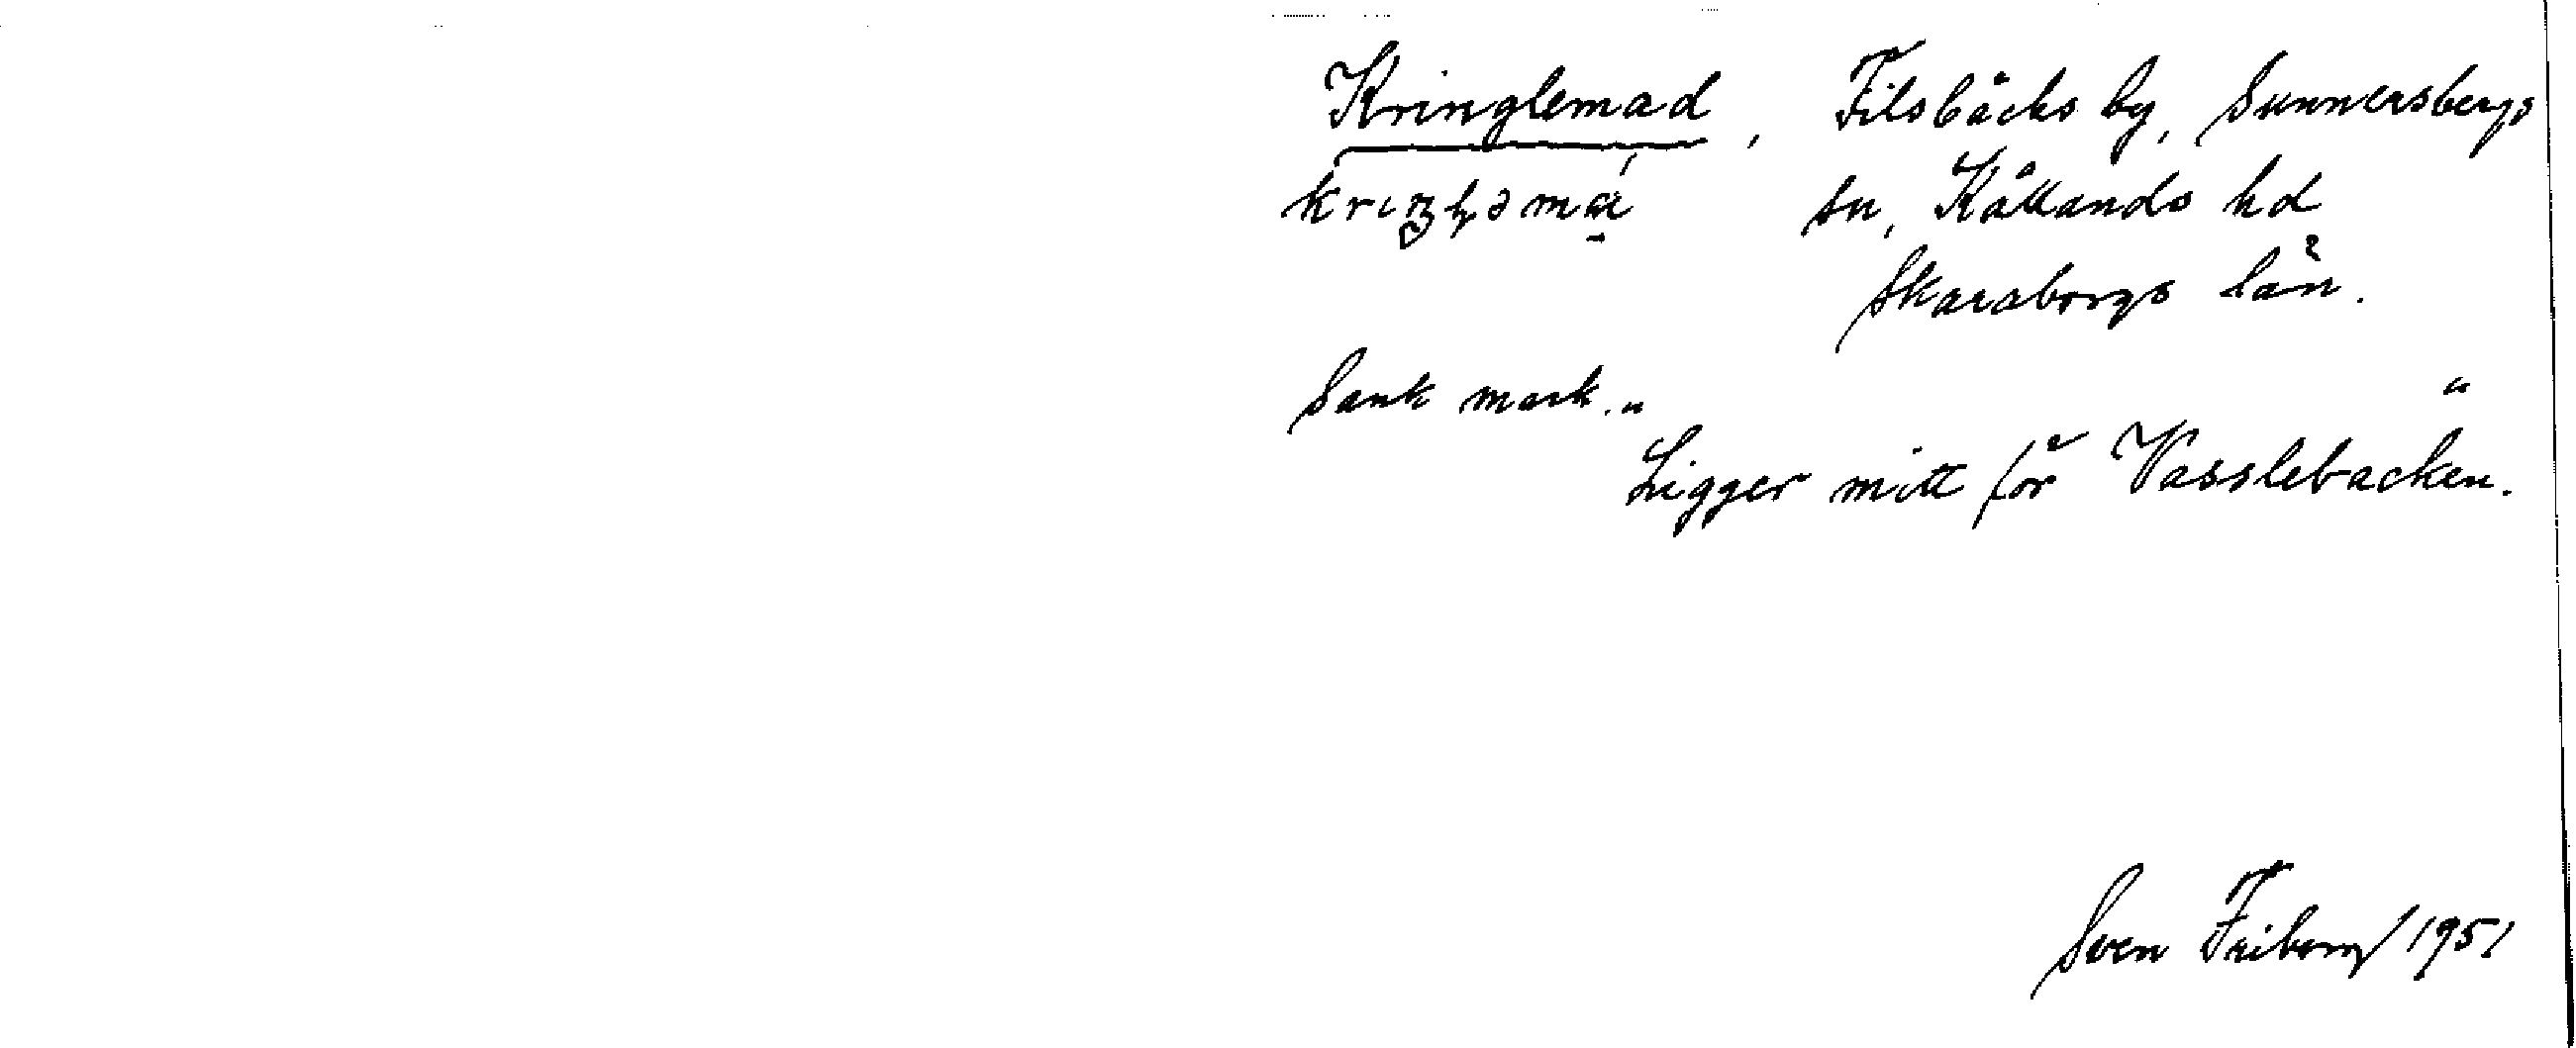 Kringlemad, Filsbäcks by, Sunnersbergs
sn, Kållands hd
Skaraborgs län.
Sank mark." "
Ligger mitt för Vasslebacken.
Sven Friborg 1951